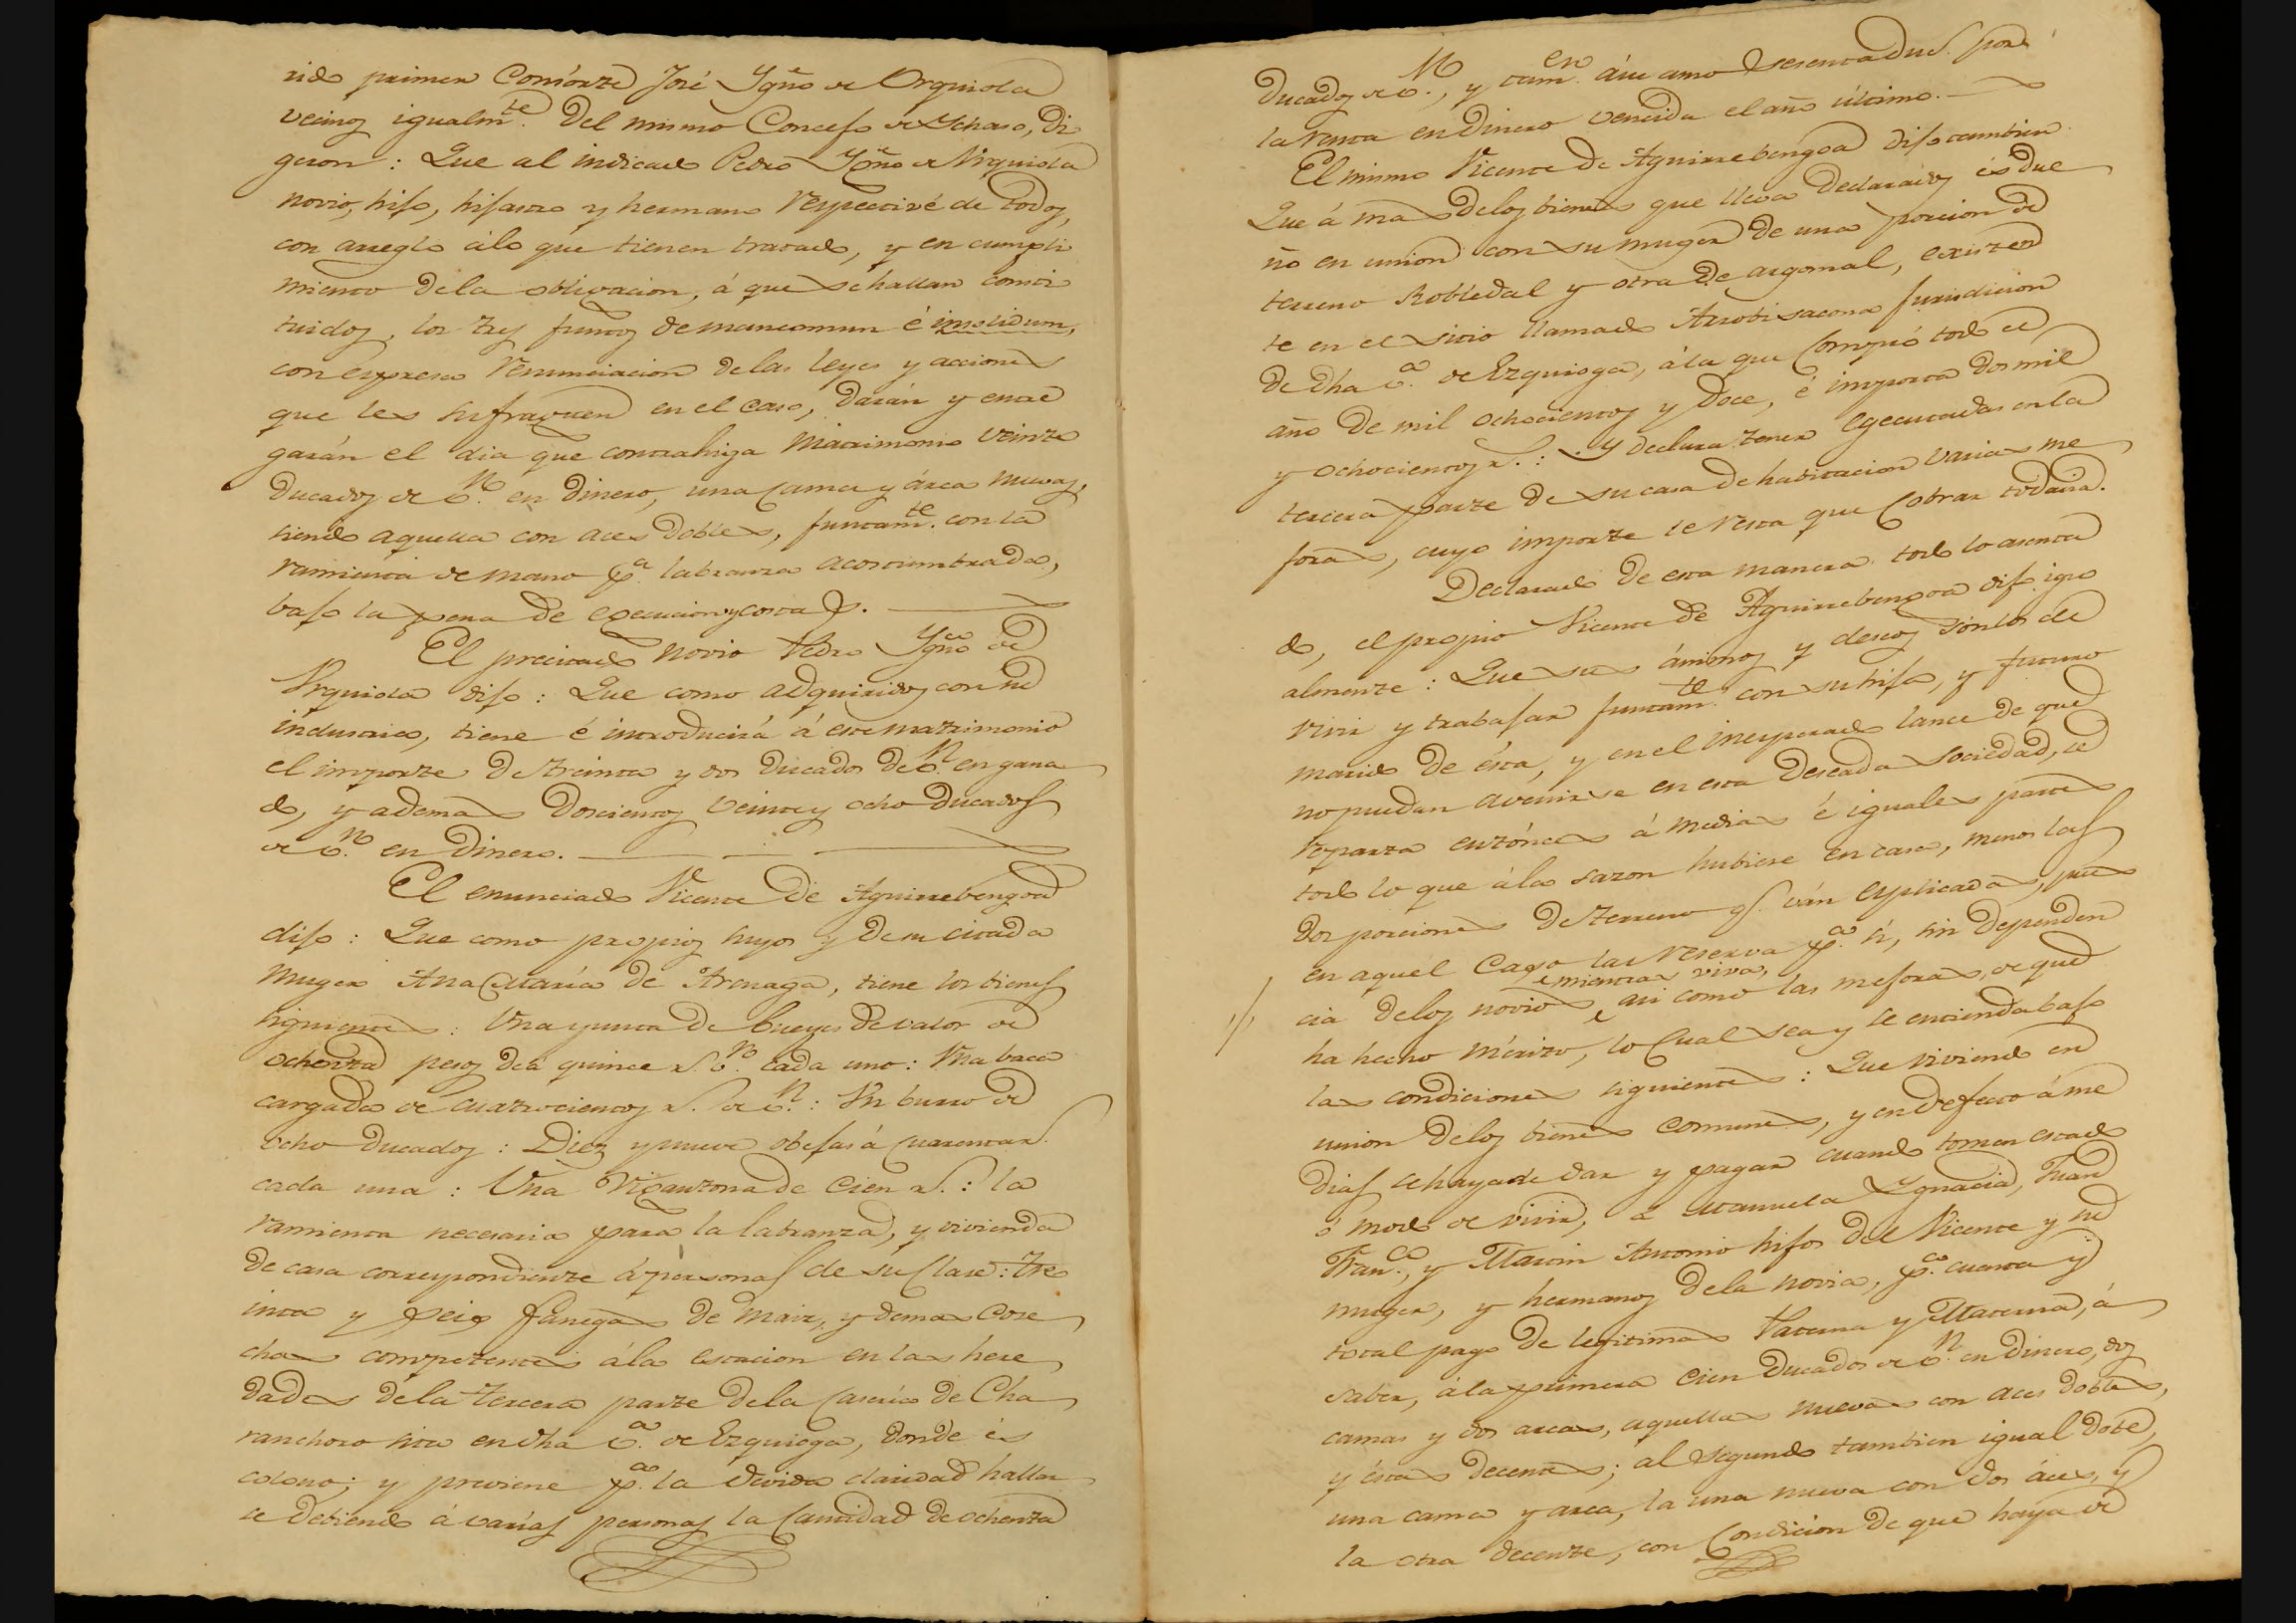 rido primer Consorte José Ygñº de Orquiola
vecinos igualmte. del mismo Concejo de Ychaso, Di
geron: Que al indicado Pedro Ygñº de Vrquiola
novio, hijo, hijastro y hermano respectivé de todos,
con arreglo álo que tienen tratado, y en cumpli
miento dela obligacion, á que se hallan consti
tuidos, los tres juntos de mancomun é insolidum,
con expresa renunciacion delas leyes y acciones
que les sufraguen en el caso, darán y entre
garán el dia que contrahiga Matrimonio veinte
Ducados de Vn. en Dinero, una Cama y árca nuevas,
siendo aquella con aces Dobles, juntamte. con la
ramienta de mano pa. labranza acostumbrada,
bajo la pena de egecucion y costas.
El precitado novio Pedro Ygñº de
Vrquiola dijo: Que como adquiridos con su
industria, tiene é introducirá á este matrimonio
el importe de treinta y dos Ducados de Vn. en gana
do, y ademas Doscientos veinte y ocho Ducados
de Vn. en Dinero.
El enunciado Vicente de Aguirrebengoa
dijo: Que como propios suyos y de su citada
muger Ana Maria de Arenaga, tiene los bienes
siguientes: Una yunta de bueyes de valor de
ochenta pesos deá quince rs. Vn. cada uno: Una baca
cargada de cuatrocientos rs. de Vn.: Un burro de
ocho Ducados: Diez y nueve obejas á cuarenta rs.
cada una: Una Vigantona de Cien rs.: la
ramienta necesaria para la labranza, y vivienda
de casa correspondiente á personas de su Clase: tre
inta y seis fanegas de maiz, y demas Cose
chas competentes ála estacion en las here
dades dela tercera parte dela Caseria de Cha
ranchoro sita en dha Va. de Ezquioga, donde és
colono; y previene pa. la devida claridad hallar
se debiendo á varias personas la Cantidad de ochenta
Ducados de Vn., y tamen. áue amo sesenta Dus. por
la renta en Dinero vencida el año último.
El mismo Vicente de Aguirrebengoa dijo tambien
Que á mas delos bienes que lleva Declarados és Due
ño en union con su muger de una porcion de
terreno Robledal y otra de argomal, existen
te en el sitio llamado Arrobisacona jurisdicion
de dha Va. de Ezquioga, ála que Compró todo el
año de mil ochocientos y Doce, é importa Dos mil
y ochocientos rs.: Y declara tener egecutadas en la
tercera parte de su casa de habitacion varias me
joras, cuyo importe le resta que Cobrar todavia.
Declarado de esta manera todo lo asenta
do, el propio Vicente de Aguirrebengoa dijo igu
almente: Que sus ánimos y deseos són los de
vivir y trabajar juntamte. con su hija, y futuro
marido de ésta, y en el inesperado lance de que
no puedan avenirse en esta Deseada sociedad, se
reparta entónces á medias é iguales partes
todo lo que ála sazon hubiere en casa, menos las
dos porciones de terreno qs. ván explicadas, pues
en aquél caso las reserva pa. sí, sin dependen
cia delos novios, mientras viva, asi como las mejoras, de que
ha hecho mérito, lo Cual sea y se entienda bajo
las condiciones siguientes: Que viviendo en
union delos bienes Comunes, y en defecto á me
dias se haya de dar y pagar cuando tomen estado
ó modo de vivir, a Manuela Ygnacia, Juan
Franco., y Martin Antonio hijos del Vicente y su
muger, y hermanos dela novia, pa. cuenta y
total pago de legitimas Paterna y Materna, á
saber, ála primera Cien Ducados de Vn. en Dinero, dos
camas y dos arcas, aquellas nuevas con aces dobles,
y éstas decentes; al segundo tambien igual Dote,
una cama y arca, la una nueva con dos áces, y
la otra decente, con Condicion de que haya de